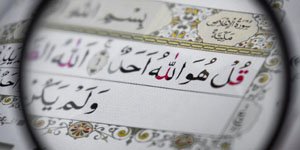 بِسْمِ اللَّهِ
قُلْ هُوَ اللَّهُ أَحَدٌ ۝١ اللَّهُ
وَلَمْ يَكُن